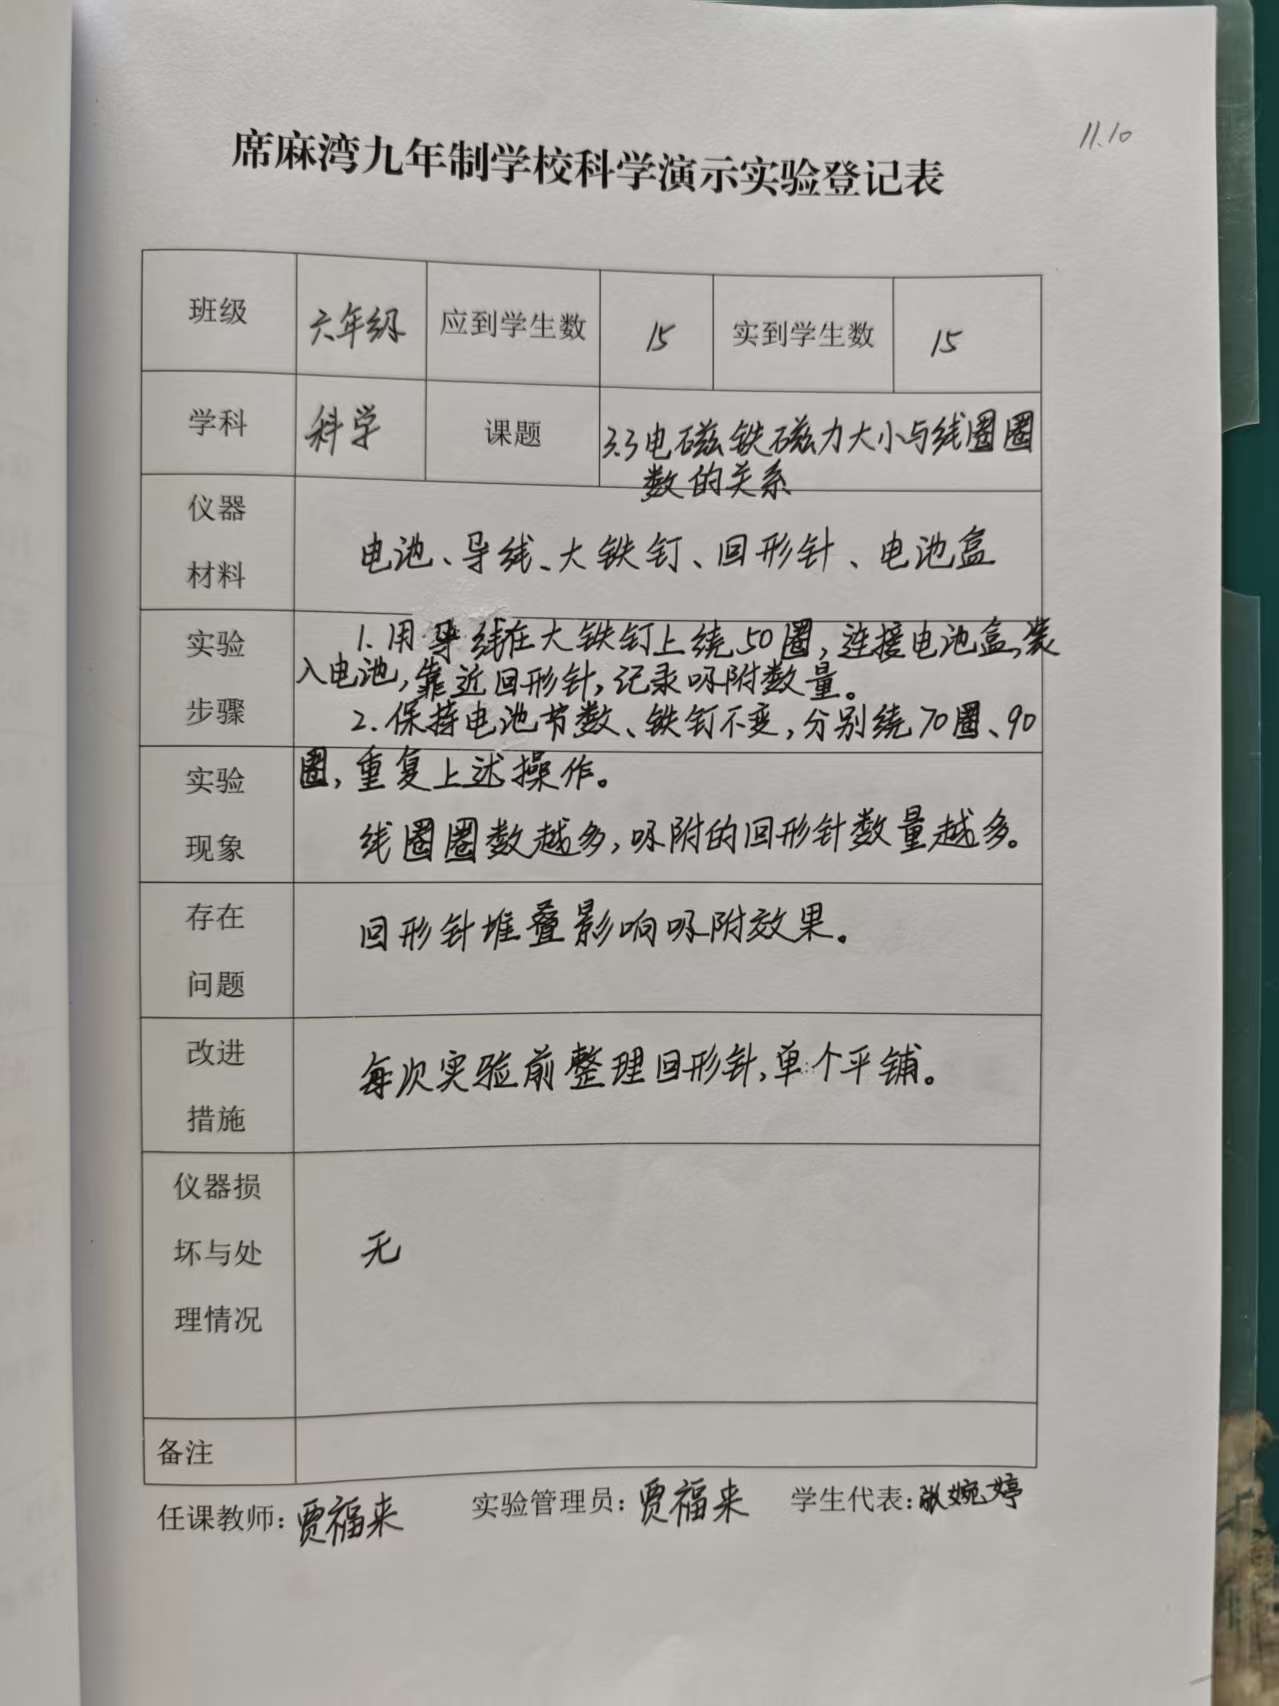 11.10
席麻湾九年制学校科学演示实验登记表
班级 六年级 应到学生数 15 实到学生数 15
学科 科学 课题 3.3电磁铁磁力大小与线圈圈
数的关系
仪器
材料
电池、导线、大铁钉、回形针、电池盒
实验
步骤
1.用导线在大铁钉上绕50圈,连接电池盒,装
入电池,靠近回形针,记录吸附数量。
2.保持电池节数、铁钉不变,分别绕70圈、90
圈,重复上述操作。
实验
现象
线圈圈数越多,吸附的回形针数量越多。
存在
问题
回形针堆叠影响吸附效果。
改进
措施
每次实验前整理回形针,单个平铺。
仪器损
坏与处
理情况
无
备注
任课教师:贾福来 实验管理员:贾福来 学生代表:张婉婷